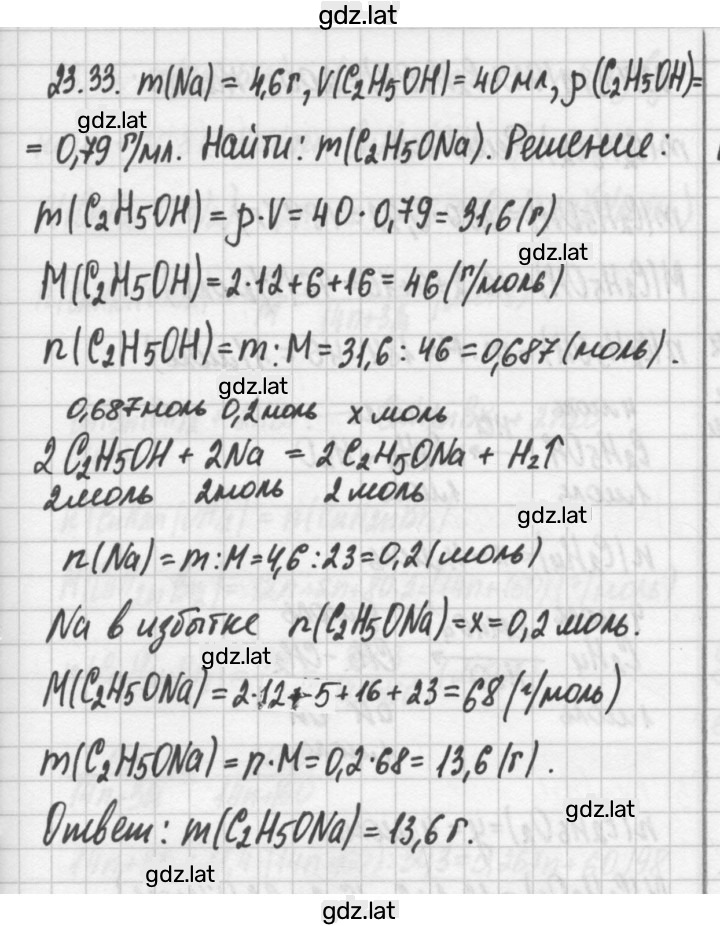 gdz.lat
23.33. m(Na) = 4,6г, V(C₂H₅OH) = 40 мл, ρ(C₂H₅OH)=
gdz.lat
= 0,79 г/мл. Найти: m(C₂H₅ONa). Решение:
m(C₂H₅OH) = ρ·V = 40·0,79 = 31,6 (г)
gdz.lat
M(C₂H₅OH) = 2·12+6+16 = 46 (г/моль)
n(C₂H₅OH) = m:M = 31,6 : 46 = 0,687 (моль).
gdz.lat
0,687 моль 0,2 моль x моль
2C₂H₅OH + 2Na = 2C₂H₅ONa + H₂↑
2 моль 2 моль 2 моль
gdz.lat
n(Na) = m:M = 4,6 : 23 = 0,2 (моль)
Na в избытке n(C₂H₅ONa) = x = 0,2 моль.
gdz.lat
M(C₂H₅ONa) = 2·12+5+16+23 = 68 (г/моль)
m(C₂H₅ONa) = n·M = 0,2·68 = 13,6 (г).
gdz.lat
Ответ: m(C₂H₅ONa) = 13,6 г.
gdz.lat
gdz.lat